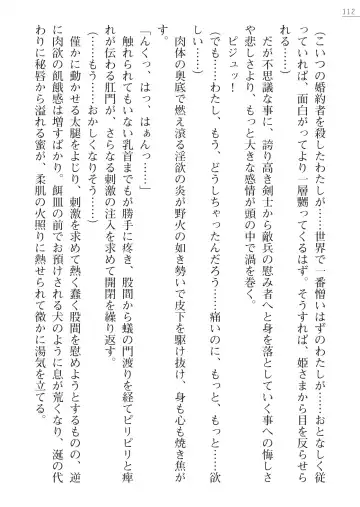 112
(こいつの婚約者を殺したわたしが……世界で一番憎いはずのわたしが……おとなしく従
っていれば、面白がってより一層嬲ってくるはず。そうすれば、姫さまから目を反らせら
れる)
だが不思議な事に、誇り高き剣士から敵兵の慰み者へと身を落としていく事への悔しさ
や悲しさより、もっと大きな感情が頭の中で渦を巻く。
ピジュッ！
(でも……わたし、もう、どうしちゃったんだろう……痛いのに、もっと、もっと……欲
しい……)
肉体の奥底で燃え滾る淫欲の炎が野火の如き勢いで皮下を駆け抜け、身も心も焼き焦が
「んくっ、はっ、はぁんっ……」
触れられてもいない乳首までもが勝手に疼き、股間から蟻の門渡りを経てピリピリと痺
れが伝わる肛門が、さらなる刺激の注入を求めて開閉を繰り返す。
(……もう……おかしくなりそう……)
僅かに動かせる太腿をよじり、刺激を求めて熱く蠢く股間を慰めようとするものの、逆
に肉欲の飢餓感は増すばかり。餌皿の前でお預けされる犬のように息が荒くなり、涎の代
わりに秘唇から溢れる蜜が、柔肌の火照りに熱せられて微かに湯気を立てる。